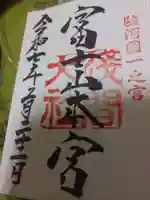 駿河國一之宮
富士山本宮
浅間
大社
令和七年五月二十一日